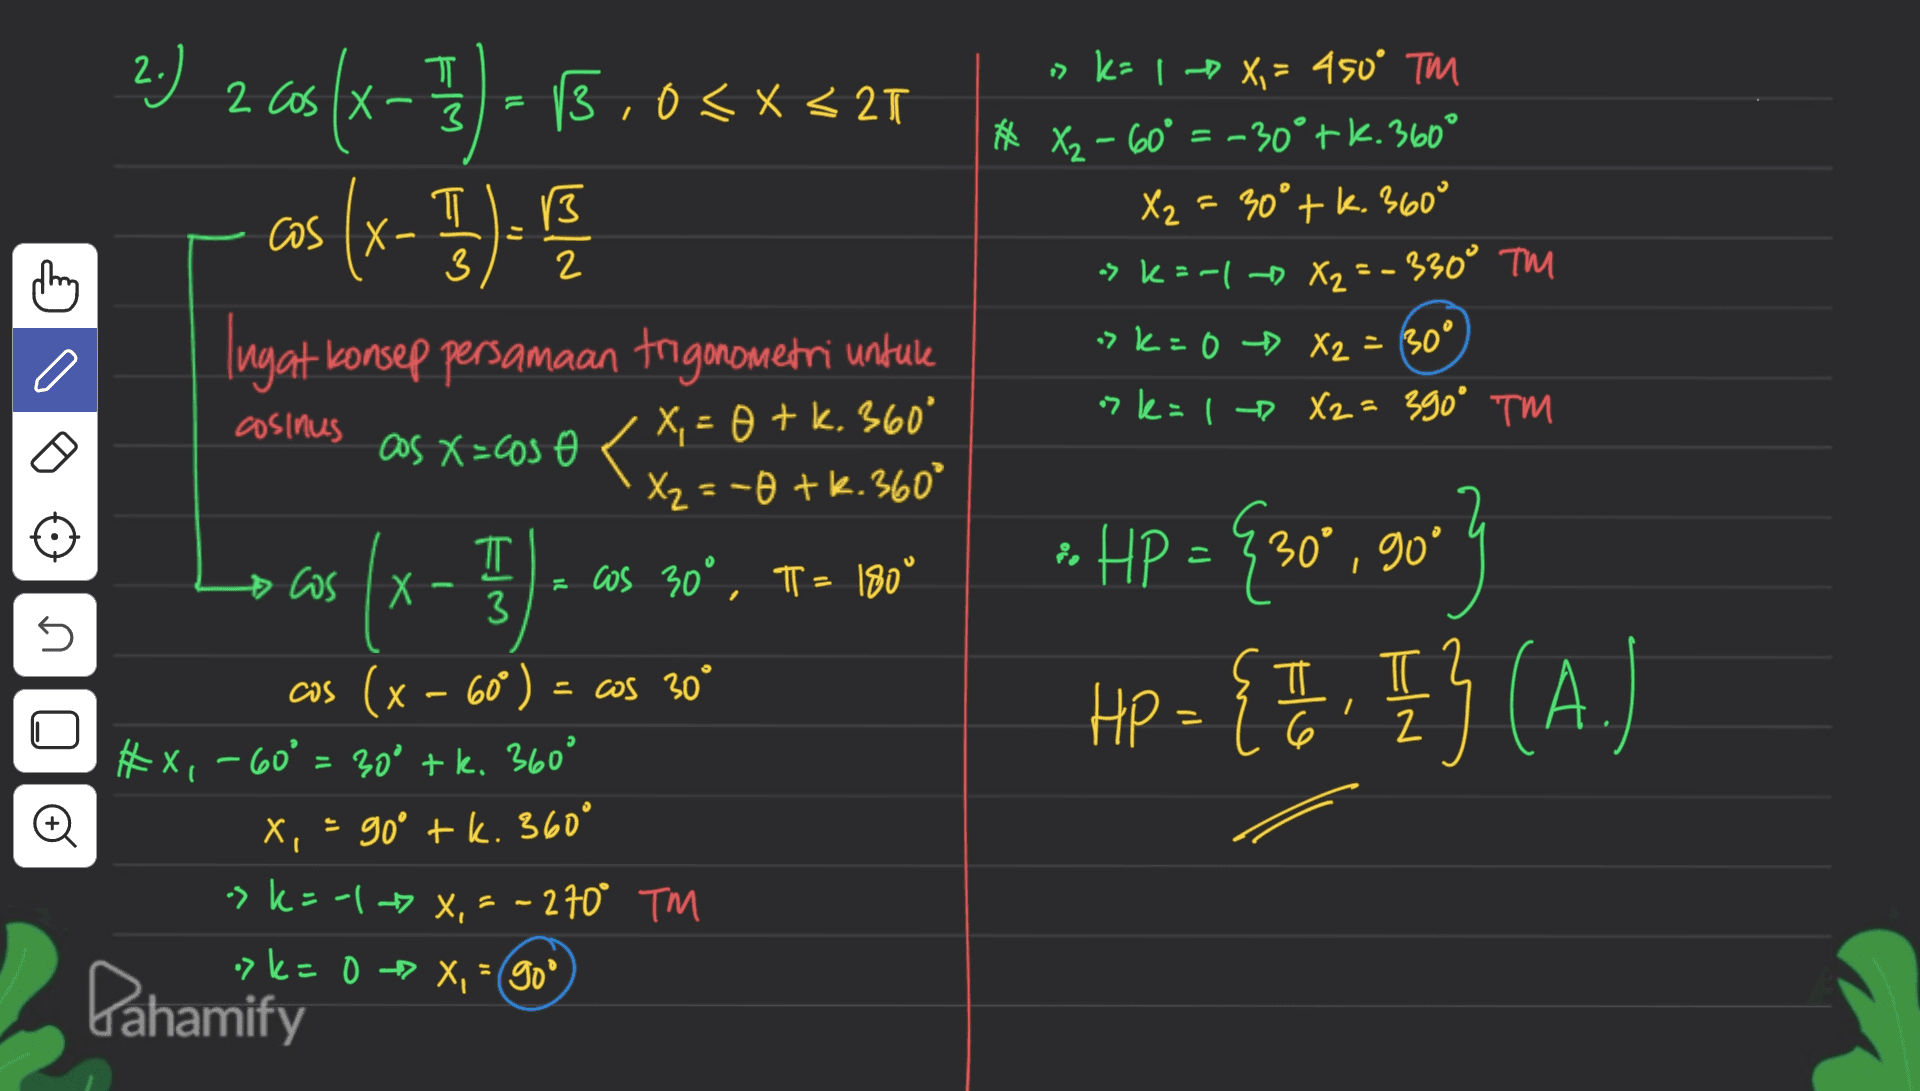 2.) 2 cos (x - π/3) = √3 , 0 ≤ x ≤ 2π
cos (x - π/3) = √3/2
Ingat konsep persamaan trigonometri untuk
cosinus cos x = cos θ < x₁ = θ + k. 360°
x₂ = -θ + k. 360°
→ cos (x - π/3) = cos 30° , π = 180°
cos (x - 60°) = cos 30°
# x₁ - 60° = 30° + k. 360°
x₁ = 90° + k. 360°
-> k = -1 → x₁ = -270° TM
-> k = 0 → x₁ = 90°
-> k = 1 → x₁ = 450° TM
# x₂ - 60° = -30° + k. 360°
x₂ = 30° + k. 360°
-> k = -1 → x₂ = -330° TM
-> k = 0 → x₂ = 30°
-> k = 1 → x₂ = 390° TM
∴ HP = {30° , 90°}
HP = {π/6 , π/2} (A.)
Pahamify